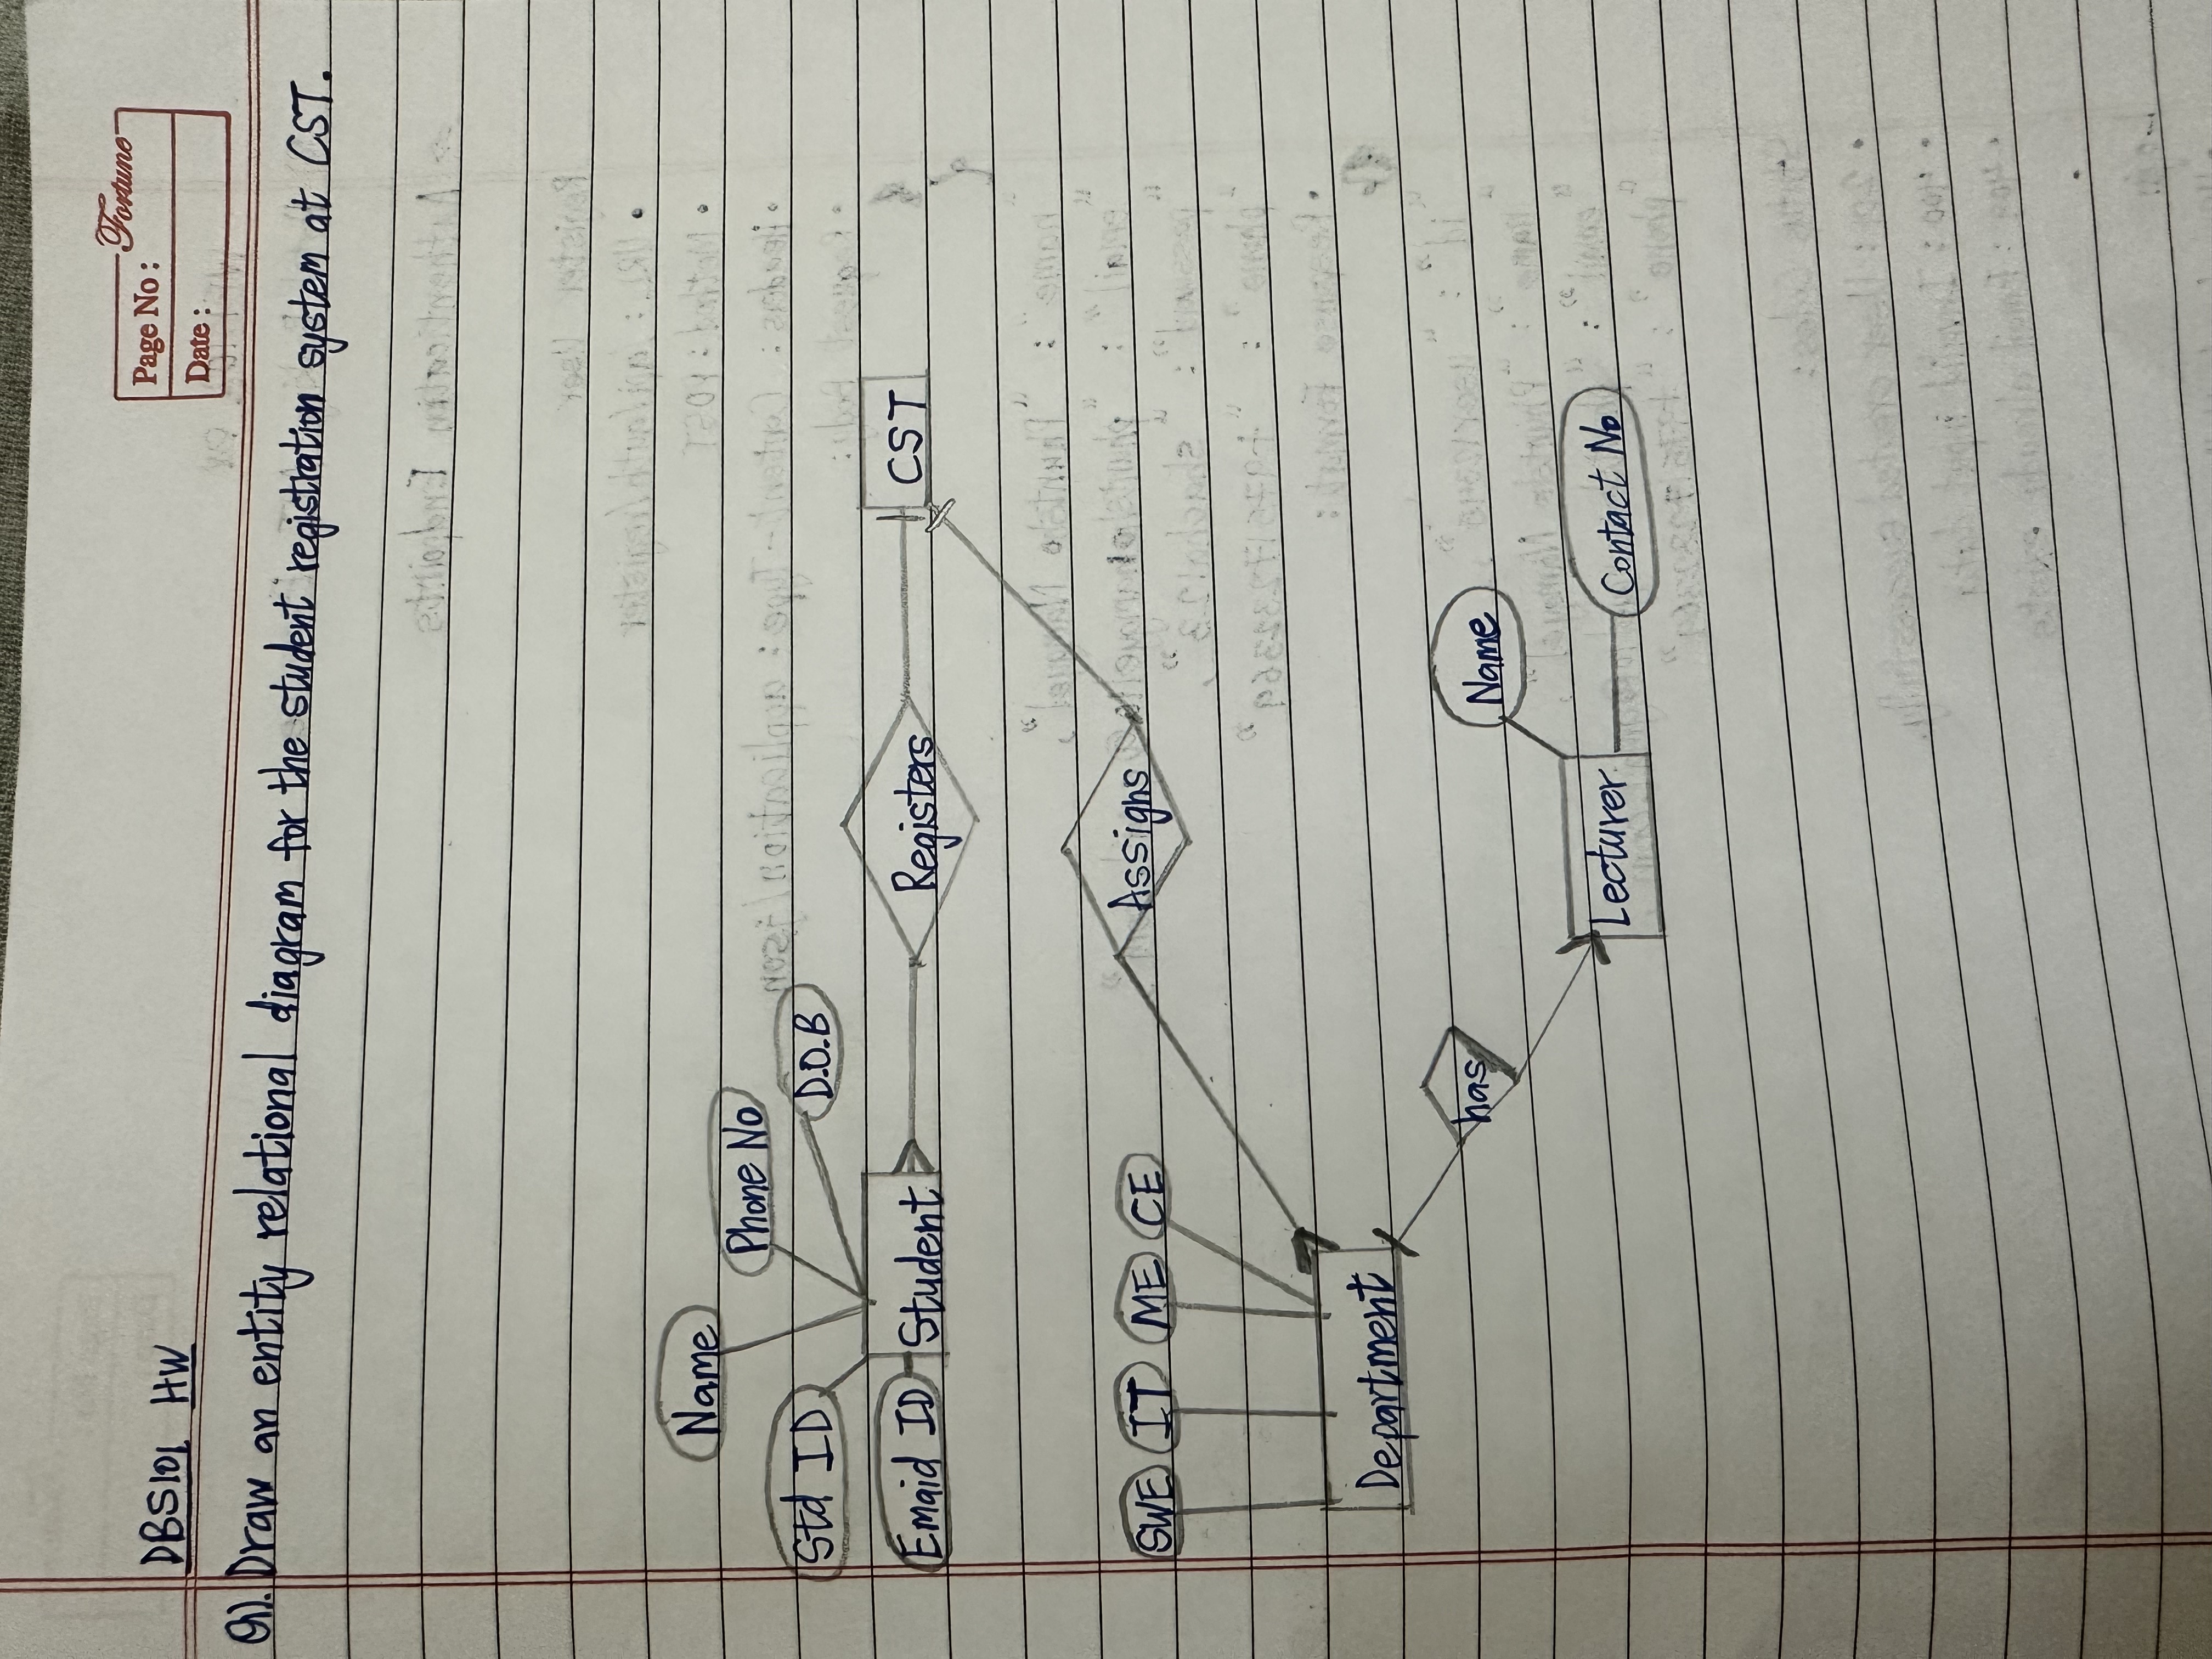 Fortune
Page No:
Date:
DBS101 HW
Q1). Draw an entity relational diagram for the student registration system at CST.
Name
Phone No
Std ID
D.O.B
Emaid ID
Student
Registers
CST
SWE
IT
ME
CE
Assighs
Department
has
Name
Lecturer
Contact No